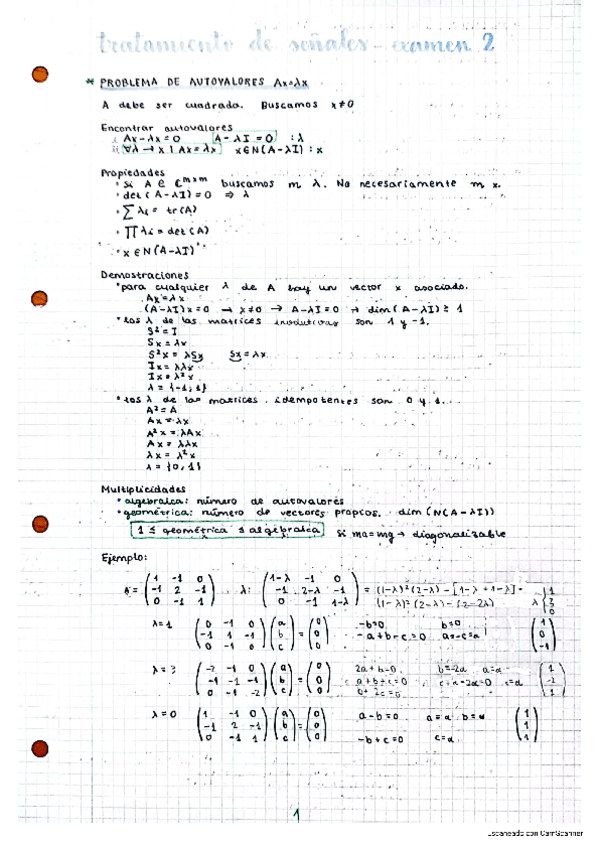 tratamiento de señales - examen 2
* PROBLEMA DE AUTOVALORES Ax=λx
A debe ser cuadrada. Buscamos x≠0
Encontrar autovalores
Ax-λx=0 A-λI=0 :λ
∀λ → x | Ax=λx x∈N(A-λI): x
Propiedades
• Si A ∈ ℂ^(m×m) buscamos m λ. No necesariamente m x.
• det(A-λI)=0 ⇒ λ
• ∑λi = tr(A)
• ∏λi = det(A)
• x∈N(A-λI)
Demostraciones
• para cualquier λ de A hay un vector x asociado.
Ax=λx
(A-λI)x=0 → x≠0 → A-λI=0 → dim(A-λI)≥1
• los λ de las matrices involutivas son 1 y -1.
S²=I
Sx=λx
S²x=λSx Sx=λx
Ix=λλx
Ix=λ²x
λ={-1,1}
• los λ de las matrices idempotentes son 0 y 1.
A²=A
Ax=λx
A²x=λAx
Ax=λλx
λx=λ²x
λ={0,1}
Multiplicidades
• algebraica: número de autovalores
• geométrica: número de vectores propios. dim(N(A-λI))
1 ≤ geométrica ≤ algebraica si ma=mg → diagonalizable
Ejemplo:
(1 -1 0 / -1 2 -1 / 0 -1 1) λ: (1-λ -1 0 / -1 2-λ -1 / 0 -1 1-λ) = (1-λ)²(2-λ) - [1-λ+1-λ] =
(1-λ)²(2-λ) - (2-2λ) λ {1 3 0
λ=1 (0 -1 0 / -1 1 -1 / 0 -1 0)(a / b / c) = (0 / 0 / 0) -b=0 -a+b-c=0 b=0 a=-c=a (1 / 0 / -1)
λ=3 (-2 -1 0 / -1 -1 -1 / 0 -1 -2)(a / b / c) = (0 / 0 / 0) 2a+b=0 a+b+c=0 b+2c=0 b=-2a a=a c+a-2a=0 c=a (1 / -2 / 1)
λ=0 (1 -1 0 / -1 2 -1 / 0 -1 1)(a / b / c) = (0 / 0 / 0) a-b=0 -b+c=0 a=a b=a c=a (1 / 1 / 1)
1
Escaneado con CamScanner